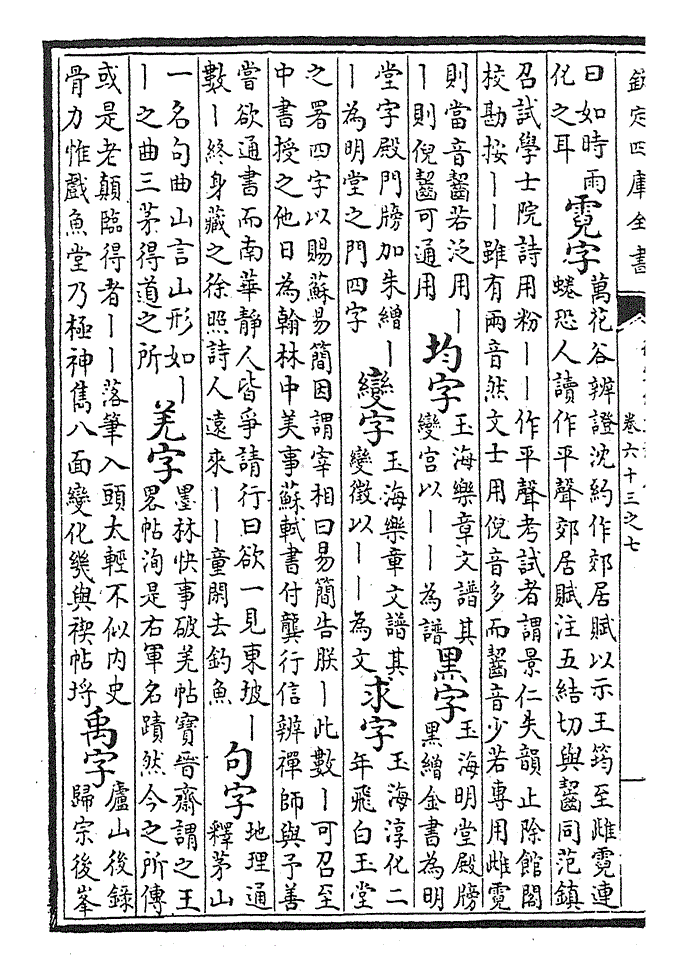 欽定四庫全書
卷六十三之七
曰如時雨
化之耳
霓字
萬花谷辨證沈約作郊居賦以示王筠至雌霓連
蜷恐人讀作平聲郊居賦注五結切與齧同范鎮
召試學士院詩用粉丨丨作平聲考試者謂景仁失韻止除館閣
校勘按丨丨雖有兩音然文士用倪音多而齧音少若專用雌霓
則當音齧若泛用丨
丨則倪齧可通用
均字
玉海樂章文譜其
變宮以丨丨為譜
黒字
玉海明堂殿牓
黒繒金書為明
堂字殿門牓加朱繒丨
丨為明堂之門四字
變字
玉海樂章文譜其
變徵以丨丨為文
求字
玉海淳化二
年飛白玉堂
之署四字以賜蘇易簡因謂宰相曰易簡告朕丨此數丨可召至
中書授之他日為翰林中美事蘇軾書付龔行信辨禪師與予善
嘗欲通書而南華靜人皆爭請行曰欲一見東坡丨
數丨終身藏之徐照詩人遠來丨丨童閑去釣魚
句字
地理通
釋茅山
一名句曲山言山形如丨
丨之曲三茅得道之所
羌字
墨林快事破羌帖寶晉齋謂之王
畧帖洵是右軍名蹟然今之所傳
或是老顛臨得者丨丨落筆入頭太輕不似内史
骨力惟戲魚堂乃極神雋八面變化幾與禊帖埒
禹字
廬山後錄
歸宗後峯